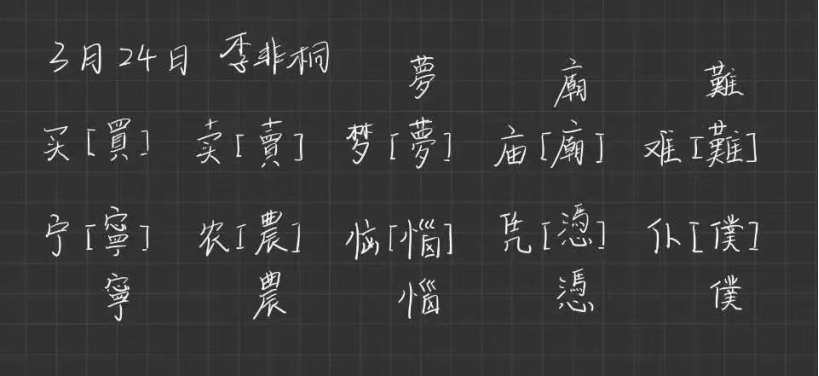 3月24日 李非桐
夢 廟 難
买[買] 卖[賣] 梦[夢] 庙[廟] 难[難]
宁[寧] 农[農] 恼[惱] 凭[憑] 仆[僕]
寧 農 惱 憑 僕